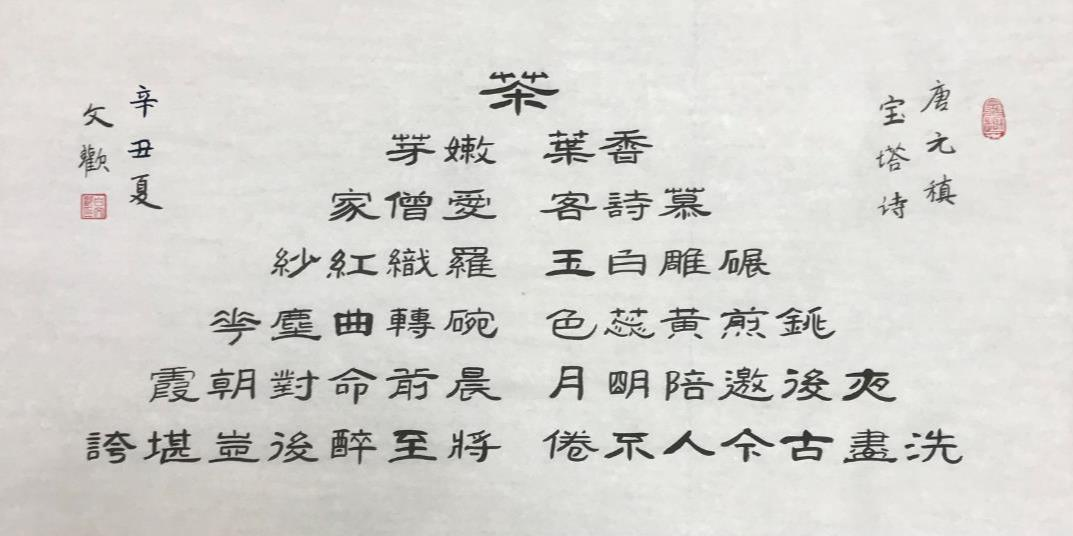 唐元稹
宝塔诗
茶
香葉 嫩芽
慕詩客 愛僧家
碾雕白玉 羅織紅紗
銚煎黃蕊色 碗轉曲塵花
夜後邀陪明月 晨前命對朝霞
洗盡古今人不倦 將至醉後豈堪誇
辛丑夏
文歡